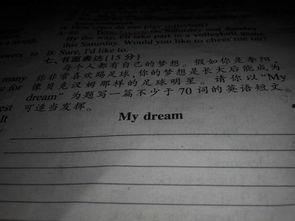 this Saturday. Would you like to cheer me up?
Sure, I'd like to.
七、书面表达(15分)
每个人都有自己的梦想。假如你是李阳,
many 你非常喜欢踢足球,你的梦想是长大后能成为
for 像贝克汉姆那样的足球明星。请你以"My
dream"为题写一篇不少于70词的英语短文。
可适当发挥。
My dream